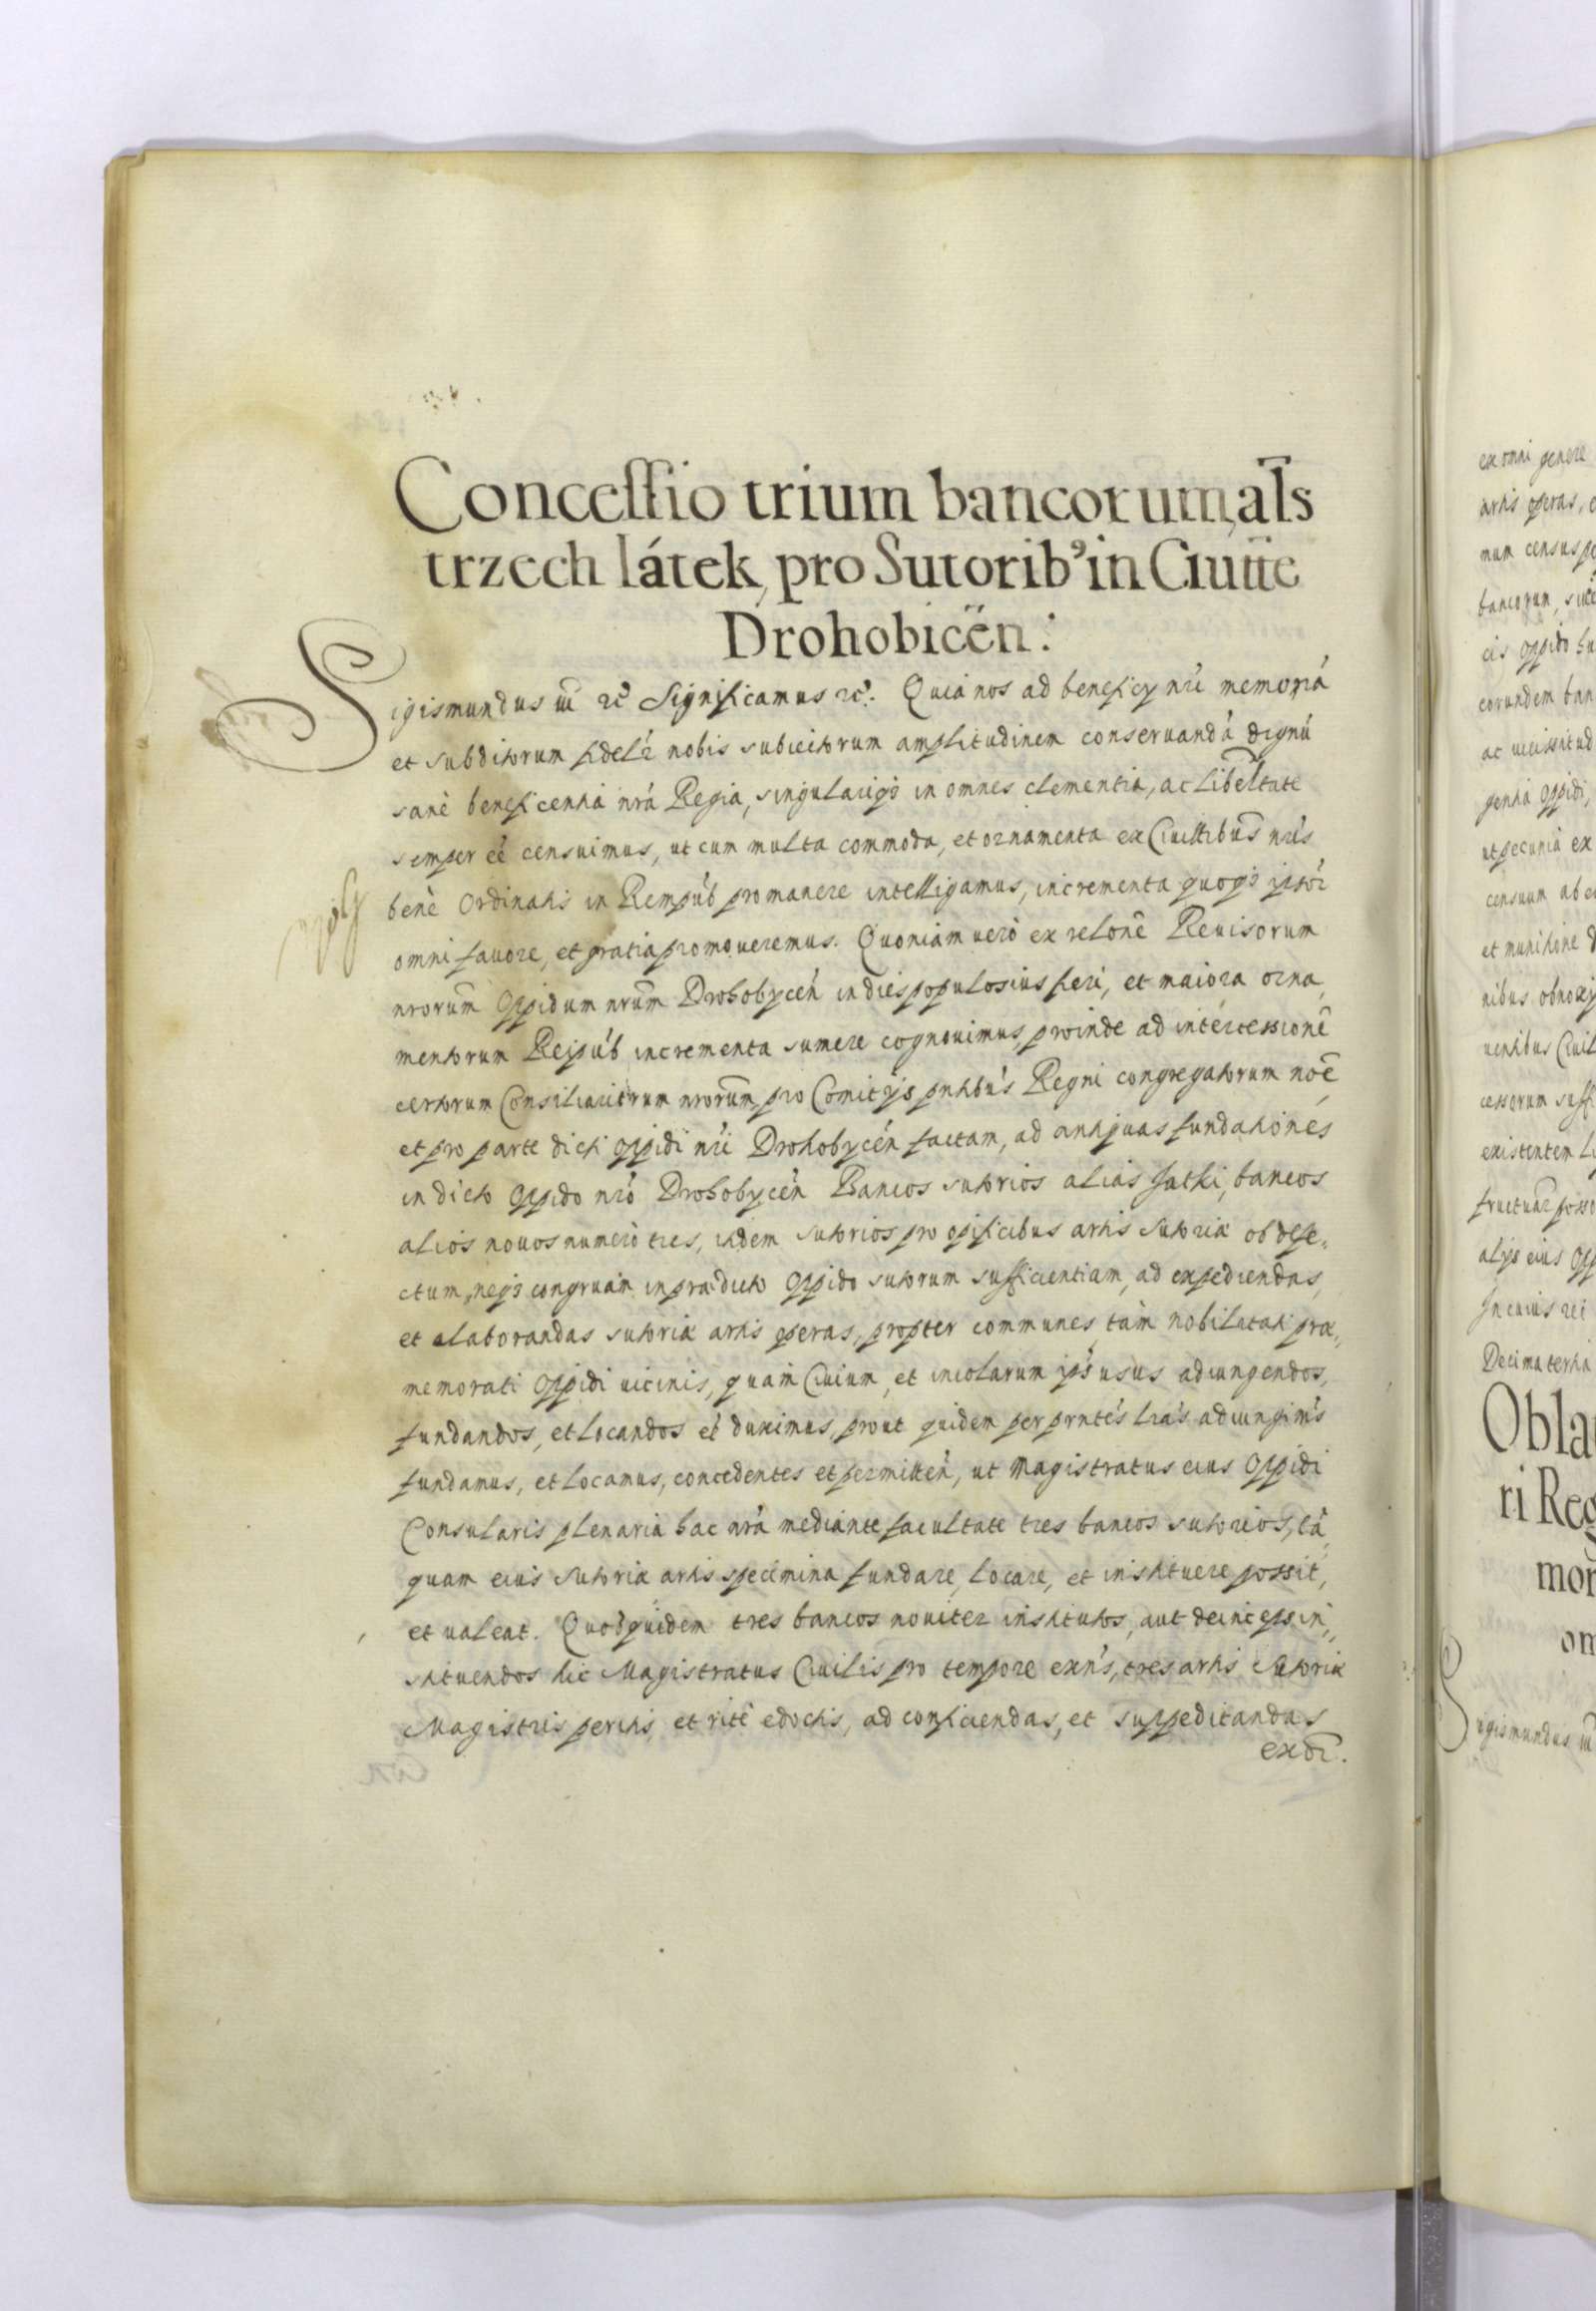 Concessio trium bancorum, al̄s
trzech látek, pro Sutorib⁹ in Ciuit̄e
Drohobiceń:
Sigismundus iii rc̃ Significamus rc̃. Quia nos ad beneficÿ nr̃i memoriá
et subditorum fideliũ nobis subiectorum amplitudinem conseruandá dignú
sanè beneficentia nrá Regia, singulariq3 in omnes clementia, ac liberltate
semper eé censuimus, ut cum multa commoda, et ornamenta ex Ciuittibus nris
benè Ordinatis in Rempúb promanere intelligamus, incrementa quoq3 ipsor̃
omni fauore, et gratia promoueremus. Quoniam uerò ex relone Reuisorum
nrorum Oppidum nrum Drohobyceń in dies populosius fieri, et maiora orna,
mentorum Reipúb incrementa sumere cognouimus, proinde ad intercessionē
certorum Consiliariorum nrorum, pro Comitÿs pntibus Regni congregatorum noē
et pro parte dicti oppidi nri Drohobyceń factam, ad antiquas fundationes
in dicto Oppido nró Drohobyceń Bancos sutorios alias Jatki, bancos
alios nouos numerò tres, itidem sutorios pro opificibus artis Sutoriæ ob defe„
ctum, neq3 congruam in prædicto Oppido sutorum sufficientiam, ad expediendas,
et elaborandas sutoriæ artis operas, propter communes tam nobilitati præ„
memorati Oppidi uicinis, quam Ciuium, et incolarum ipś usus adiungendos,
fundandos, et locandos eé duximus, prout quidem per prnte's lrá's adiungim's
fundamus, et locamus, concedentes et permitteń, ut Magistratus eius Oppidi
Consularis plenaria hac nrá mediante facultate tres bancos sutorios, tá,
quam eius sutoriæ artis specimina fundare, locare, et instituere possit,
et ualeat. Quosquidem tres bancos nouiter institutos, aut deinceps in„
stituendos hic Magistratus Ciuilis pro tempore exn's, tres artis sutoriæ
Magistris peritis, et ritè edoctis, ad conficiendas, et suppeditandas
ex oī.
ex omni genere
artis operas,
num census
bancorum,
cis oppido
eorundem ban
ac uicissitud
gentia Oppidi,
ut pecunia ex
censuum ab
et munitine
nibus obnoxÿ
uentibus Ciuil
cessorum suff
existentem
fructuar̃ posse
alÿs eius Opp
In cuius rei
Decima tertia
Obla
ri Reg
mor
om
Sigismundus iii